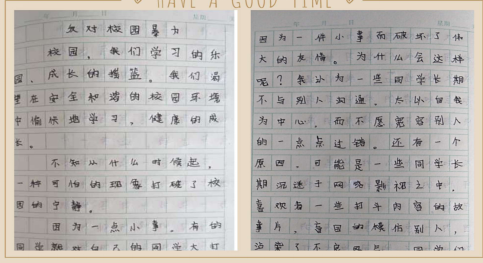 HAVE A GOOD TIME
反对校园暴力
校园，我们学习的乐
园、成长的摇篮。我们渴
望在安全和谐的校园环境
中愉快地学习。健康的成
长。
不知从什么时候起，
一种可怕的现象打破了校
园的宁静。
因为一点小事，有的
因为一件小事而破坏了伟
大的友情。为什么会这样
呢？我认为一些同学长期
不与别人沟通。凡以自我
为中心，而不愿宽容别人
的一点点过错。还有一个
原因，可能是一些同学长
期沉迷于网络影视之中，
喜欢看一些打斗内容的故
事片。看回的模仿别人，